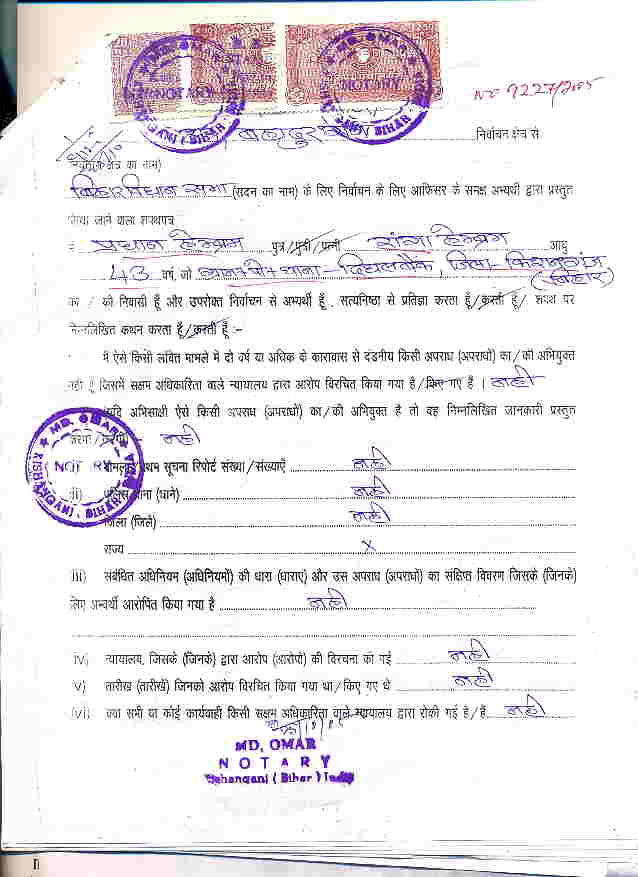 MD. OMAR
NOTARY
MD. OMAR
NOTARY
BIHAR
No 9227/2005
बहादुरगंज निर्वाचन क्षेत्र से
निर्वाचन क्षेत्र का नाम)
बिहार विधान सभा (सदन का नाम) के लिए निर्वाचन के लिए आफिसर के समक्ष अभ्यर्थी द्वारा प्रस्तुत
किया जाने वाला शपथपत्र
मैं प्रधान हेम्ब्रम पुत्र/पुत्री/पत्नी हेम्ब्रम आयु
43 वर्ष, जो थाना - दिघलबैंक, जिला - किशनगंज
(बिहार)
का / की निवासी हूँ और उपरोक्त निर्वाचन से अभ्यर्थी हूँ, सत्यनिष्ठा से प्रतिज्ञा करता हूँ/करती हूँ/ शपथ पर
निम्नलिखित कथन करता हूँ/करती हूँ :-
मैं ऐसे किसी लंबित मामले में दो वर्ष या अधिक दो कारावास से दंडनीय किसी अपराध (अपराधों) का/की अभियुक्त
नहीं हूँ जिसमें सक्षम अधिकारिता वाले न्यायालय द्वारा आरोप विरचित किया गया है/किए गए हैं । नहीं
यदि अभिसाक्षी ऐसे किसी अपराध (अपराधों) का/की अभियुक्त है तो वह निम्नलिखित जानकारी प्रस्तुत
करेगा/करेगी :- नहीं
MD. OMAR
NOTARY
KISHANGANJ, BIHAR
मामला/प्रथम सूचना रिपोर्ट संख्या/संख्याएँ नहीं
ii) पुलिस थाना (थाने) नहीं
जिला (जिले) नहीं
राज्य X
iii) संबंधित अधिनियम (अधिनियमों) की धारा (धाराएं) और उस अपराध (अपराधों) का संक्षिप्त विवरण जिसके (जिनके)
लिए अभ्यर्थी आरोपित किया गया है नहीं
iv) न्यायालय, जिसके (जिनके) द्वारा आरोप (आरोपों) की विरचना की गई नहीं
v) तारीख (तारीखें) जिनको आरोप विरचित किया गया था/किए गए थे नहीं
(vi) क्या सभी या कोई कार्यवाही किसी सक्षम अधिकारिता वाले न्यायालय द्वारा रोकी गई है/हैं नहीं
MD, OMAR
NOTARY
Kishanganj (Bihar) India